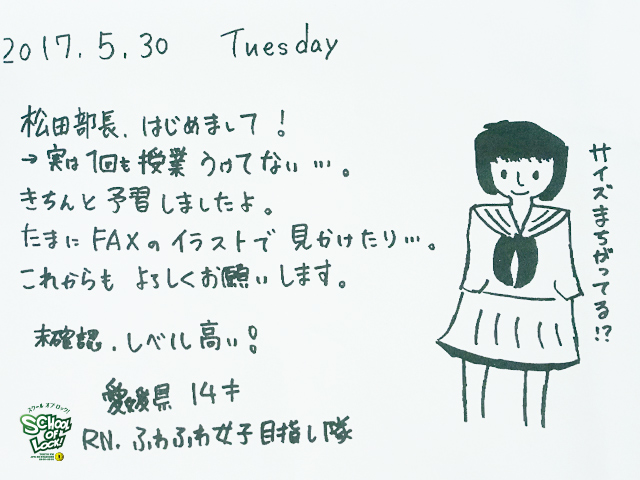 2017.5.30 Tuesday
松田部長、はじめまして!
→実は1回も授業うけてない…。
きちんと予習しましたよ。
たまにFAXのイラストで見かけたり…。
これからもよろしくお願いします。
未確認、レベル高い!
愛媛県 14才
RN. ふわふわ女子目指し隊
サイズまちがってる!?
スクール オブ ロック!
SCHOOL OF LOCK!